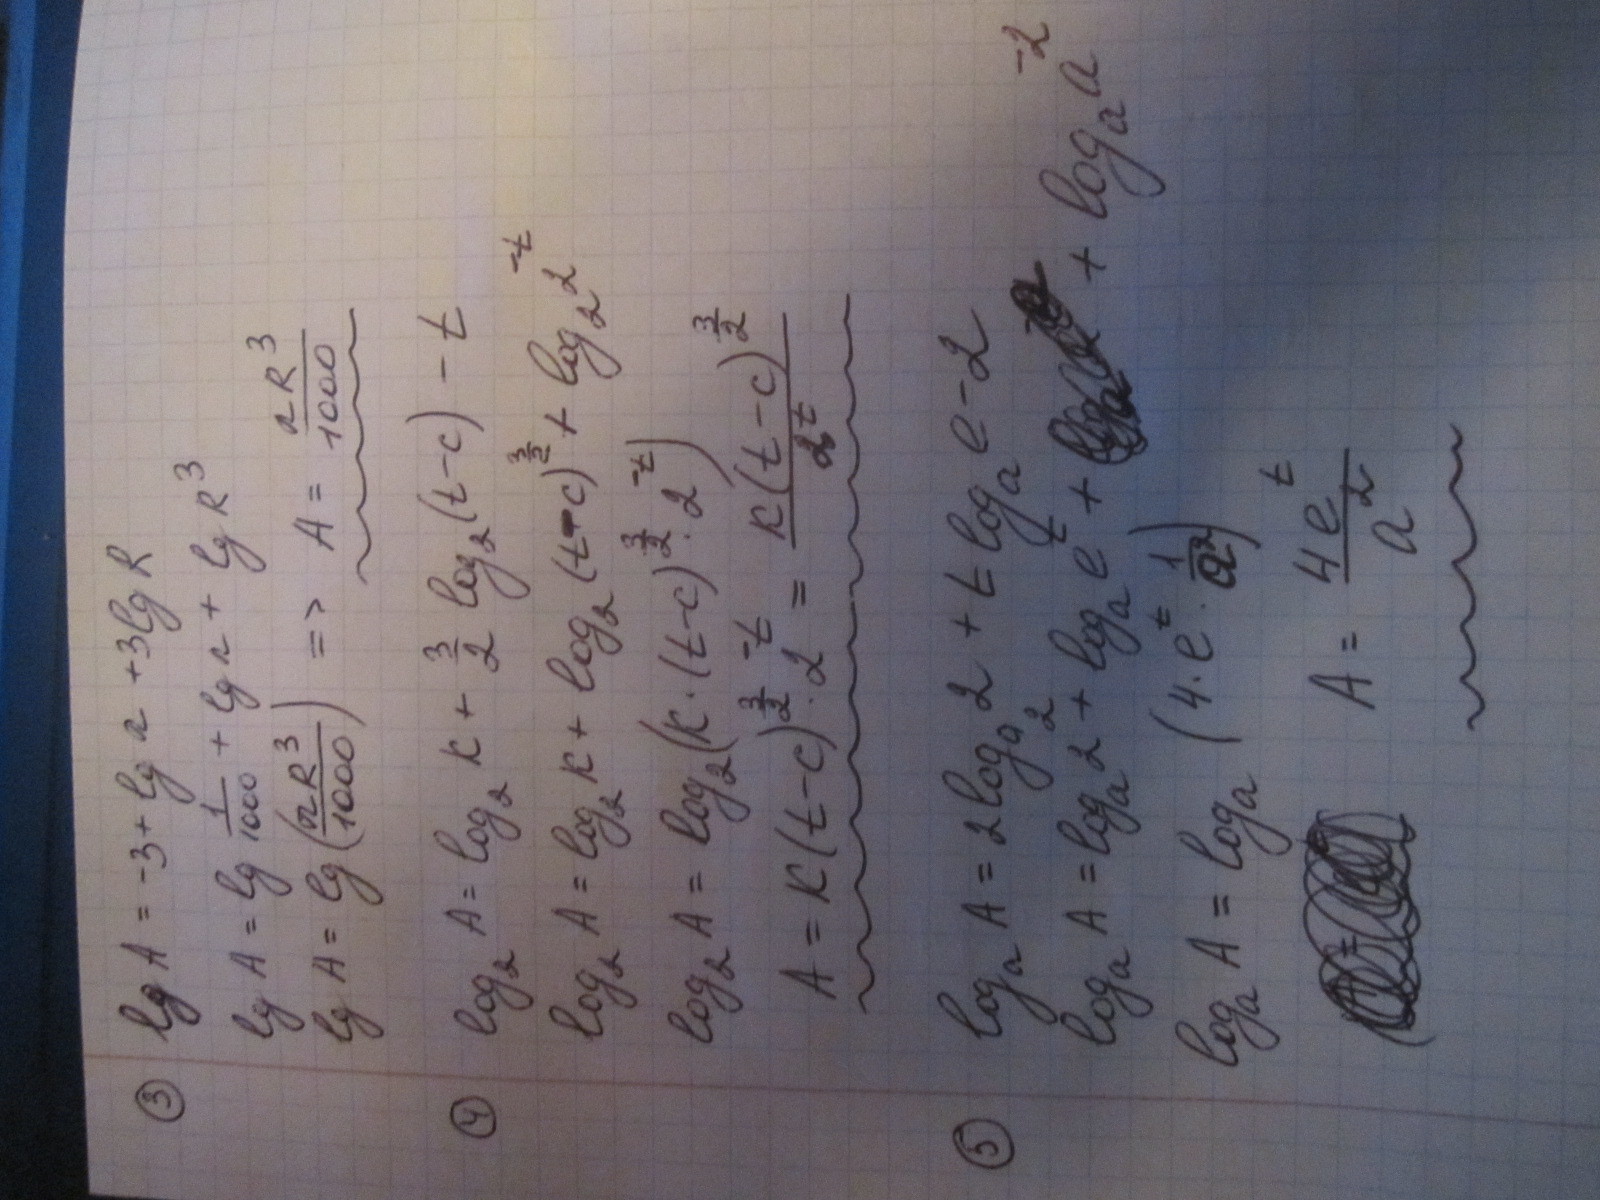 ③ lg A = -3 + lg r + 3lg R
lg A = lg 1/1000 + lg r + lg R³
lg A = lg (rR³/1000) => A = rR³/1000
④ log₂ A = log₂ K + 3/2 log₂ (t-c) - t
log₂ A = log₂ K + log₂ (t-c)^(3/2) + log₂ 2^(-t)
log₂ A = log₂ (K · (t-c)^(3/2) · 2^(-t))
A = K(t-c)^(3/2) · 2^(-t) = K(t-c)^(3/2)/2^t
⑤ logₐ A = 2 logₐ 2 + t logₐ e - 2
logₐ A = logₐ 2² + logₐ e^t + + logₐ a^(-2)
logₐ A = logₐ (4 · e^t · 1/a²)
A = 4e^t/a²